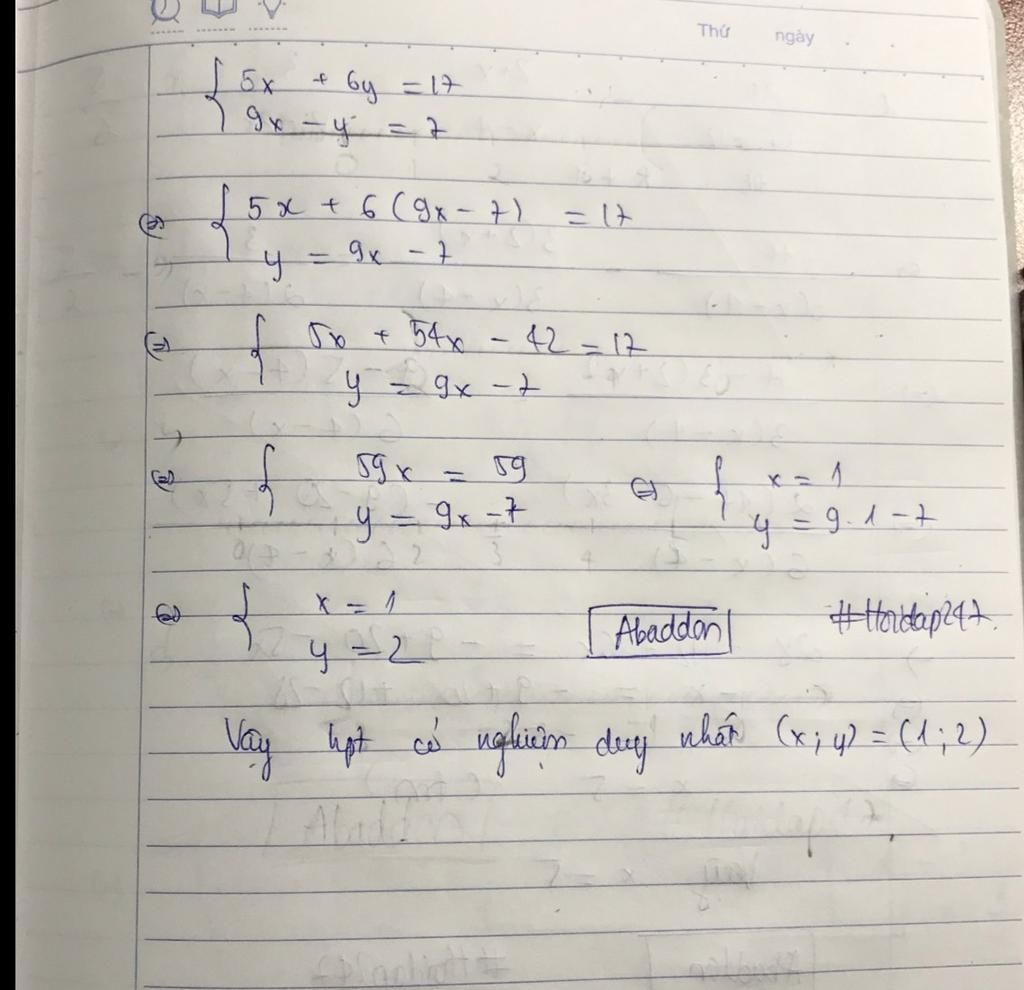 Thứ ngày
{ 5x + 6y = 17
9x - y = 7
⇔ { 5x + 6(9x - 7) = 17
y = 9x - 7
⇔ { 5x + 54x - 42 = 17
y = 9x - 7
⇔ { 59x = 59 ⇔ { x = 1
y = 9x - 7 y = 9.1 - 7
⇔ { x = 1
y = 2 Abaddon #Hoidap247.
Vậy hpt có nghiệm duy nhất (x; y) = (1; 2)